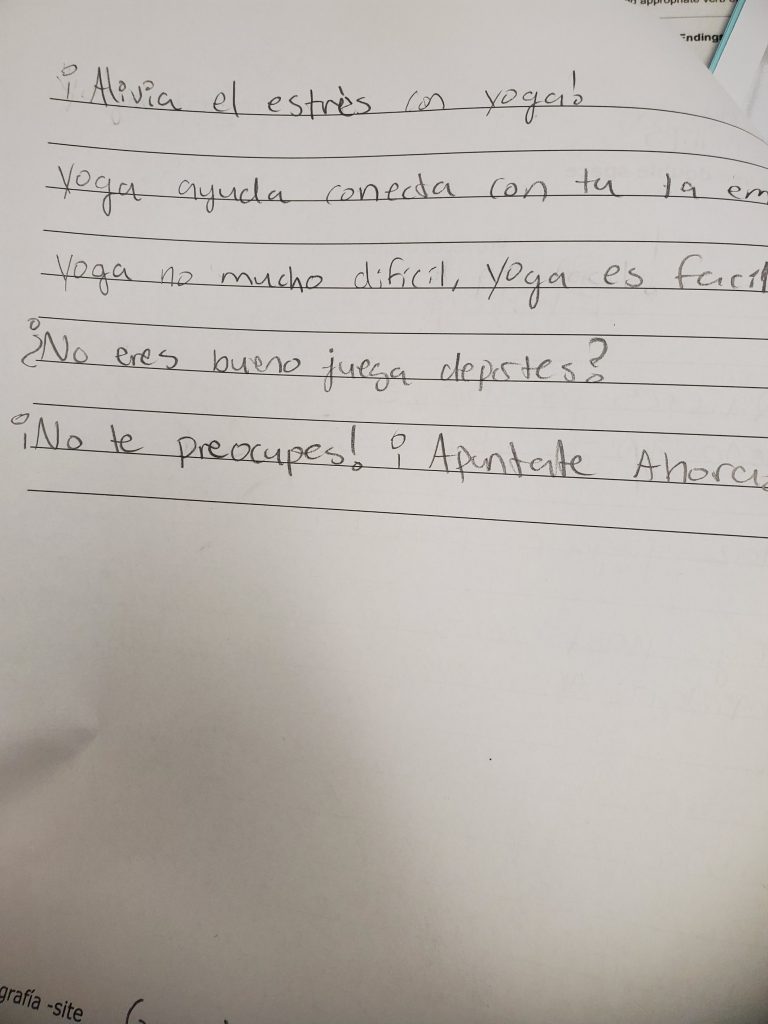 appropriate verb
Ending
¡Alivia el estrès con yoga!
Yoga ayuda conecta con tu la em
Yoga no mucho dificil, yoga es facil
¿No eres bueno juega deportes?
¡No te preocupes! ¡Apuntate Ahora
grafía -site